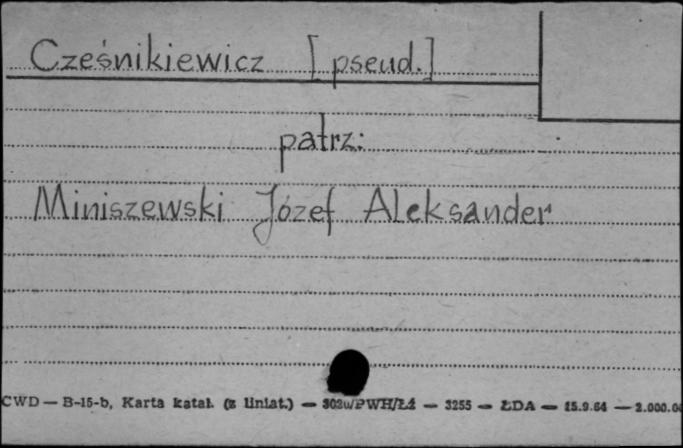 Cześnikiewicz [pseud.]
patrz:
Miniszewski Józef Aleksander
CWD — B-15-b, Karta katal. (z liniat.) — 302u/PWH/Ł4 — 3255 — ŁDA — 15.9.64 — 2.000.0